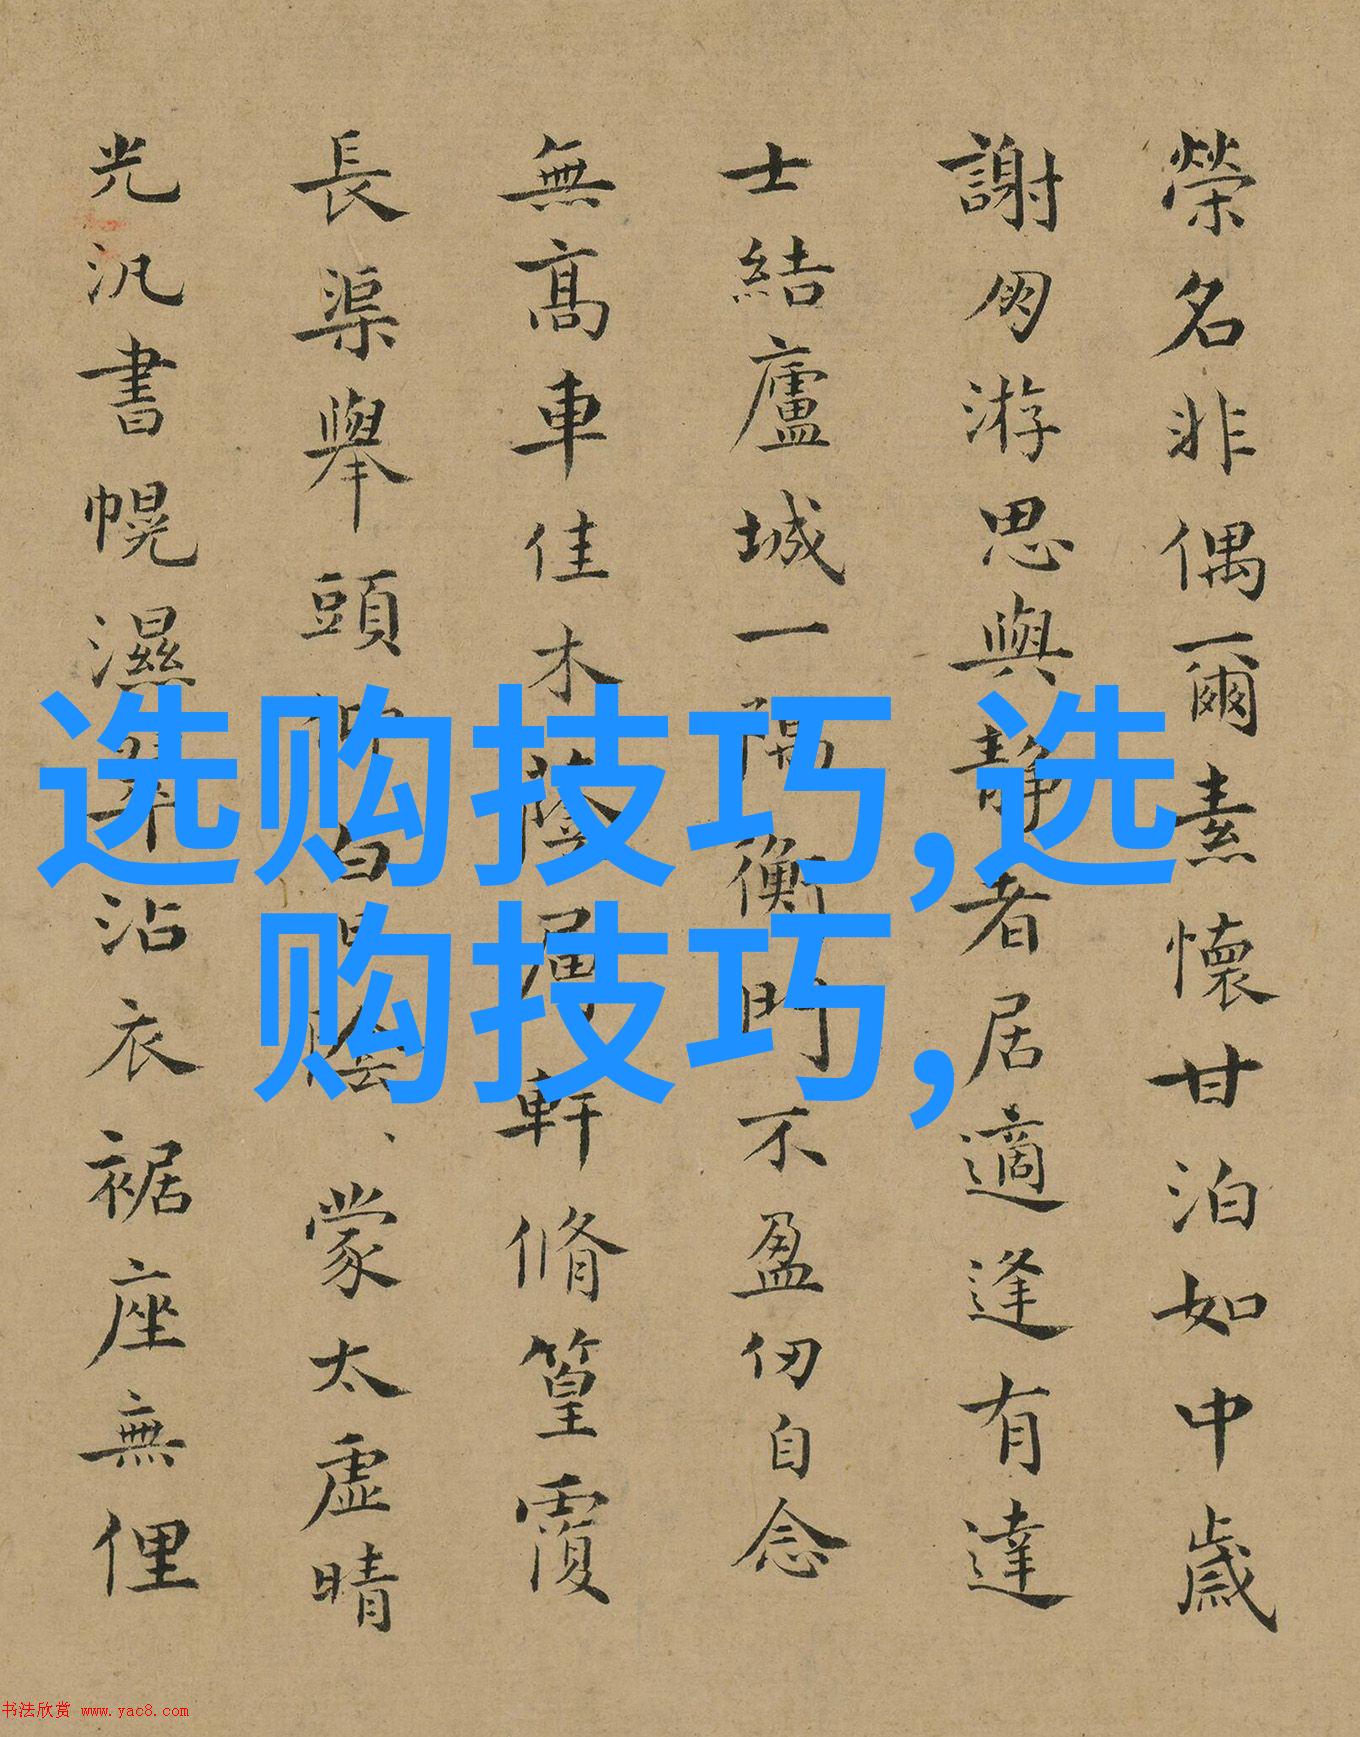 榮名非偶爾素懷甘泊如中歲
謝朋游思與静者居適逢有達
士結廬城一隅衡門不盈仞自念
無髙車佳木蔭層軒脩篁覆
長渠舉頭仰白日陰、蒙太虚晴
光汎書幌濕翠沾衣裾座無俚
选购技巧,选
购技巧,
书法欣赏 www.yac8.com